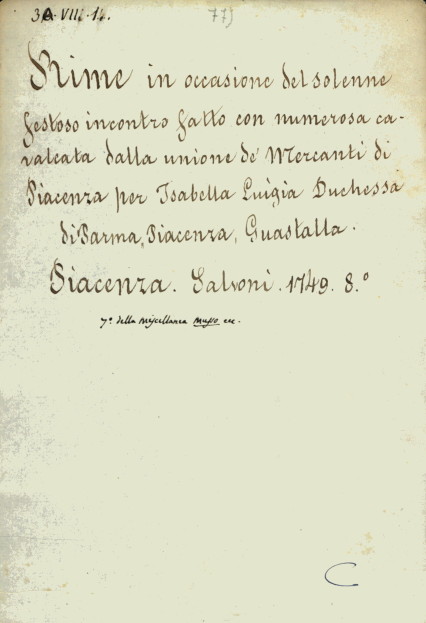 30.VIII.14. 77)
Rime in occasione del solenne
festoso incontro fatto con numerosa ca-
valcata dalla unione de' Mercanti di
Piacenza per Isabella Luigia Duchessa
di Parma, Piacenza, Guastalla.
Piacenza. Salvoni. 1749. 8.º
7.ª della miscellanea
C